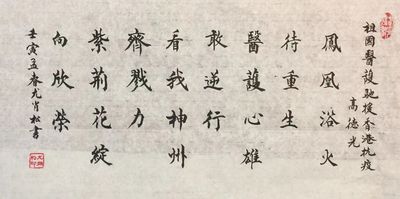 祖国醫護馳援香港抗疫
高德光
鳳凰浴火
待重生
醫護心雄
敢逆行
看我神州
齊戮力
紫荆花綻
向欣榮
壬寅孟春尤肖松書